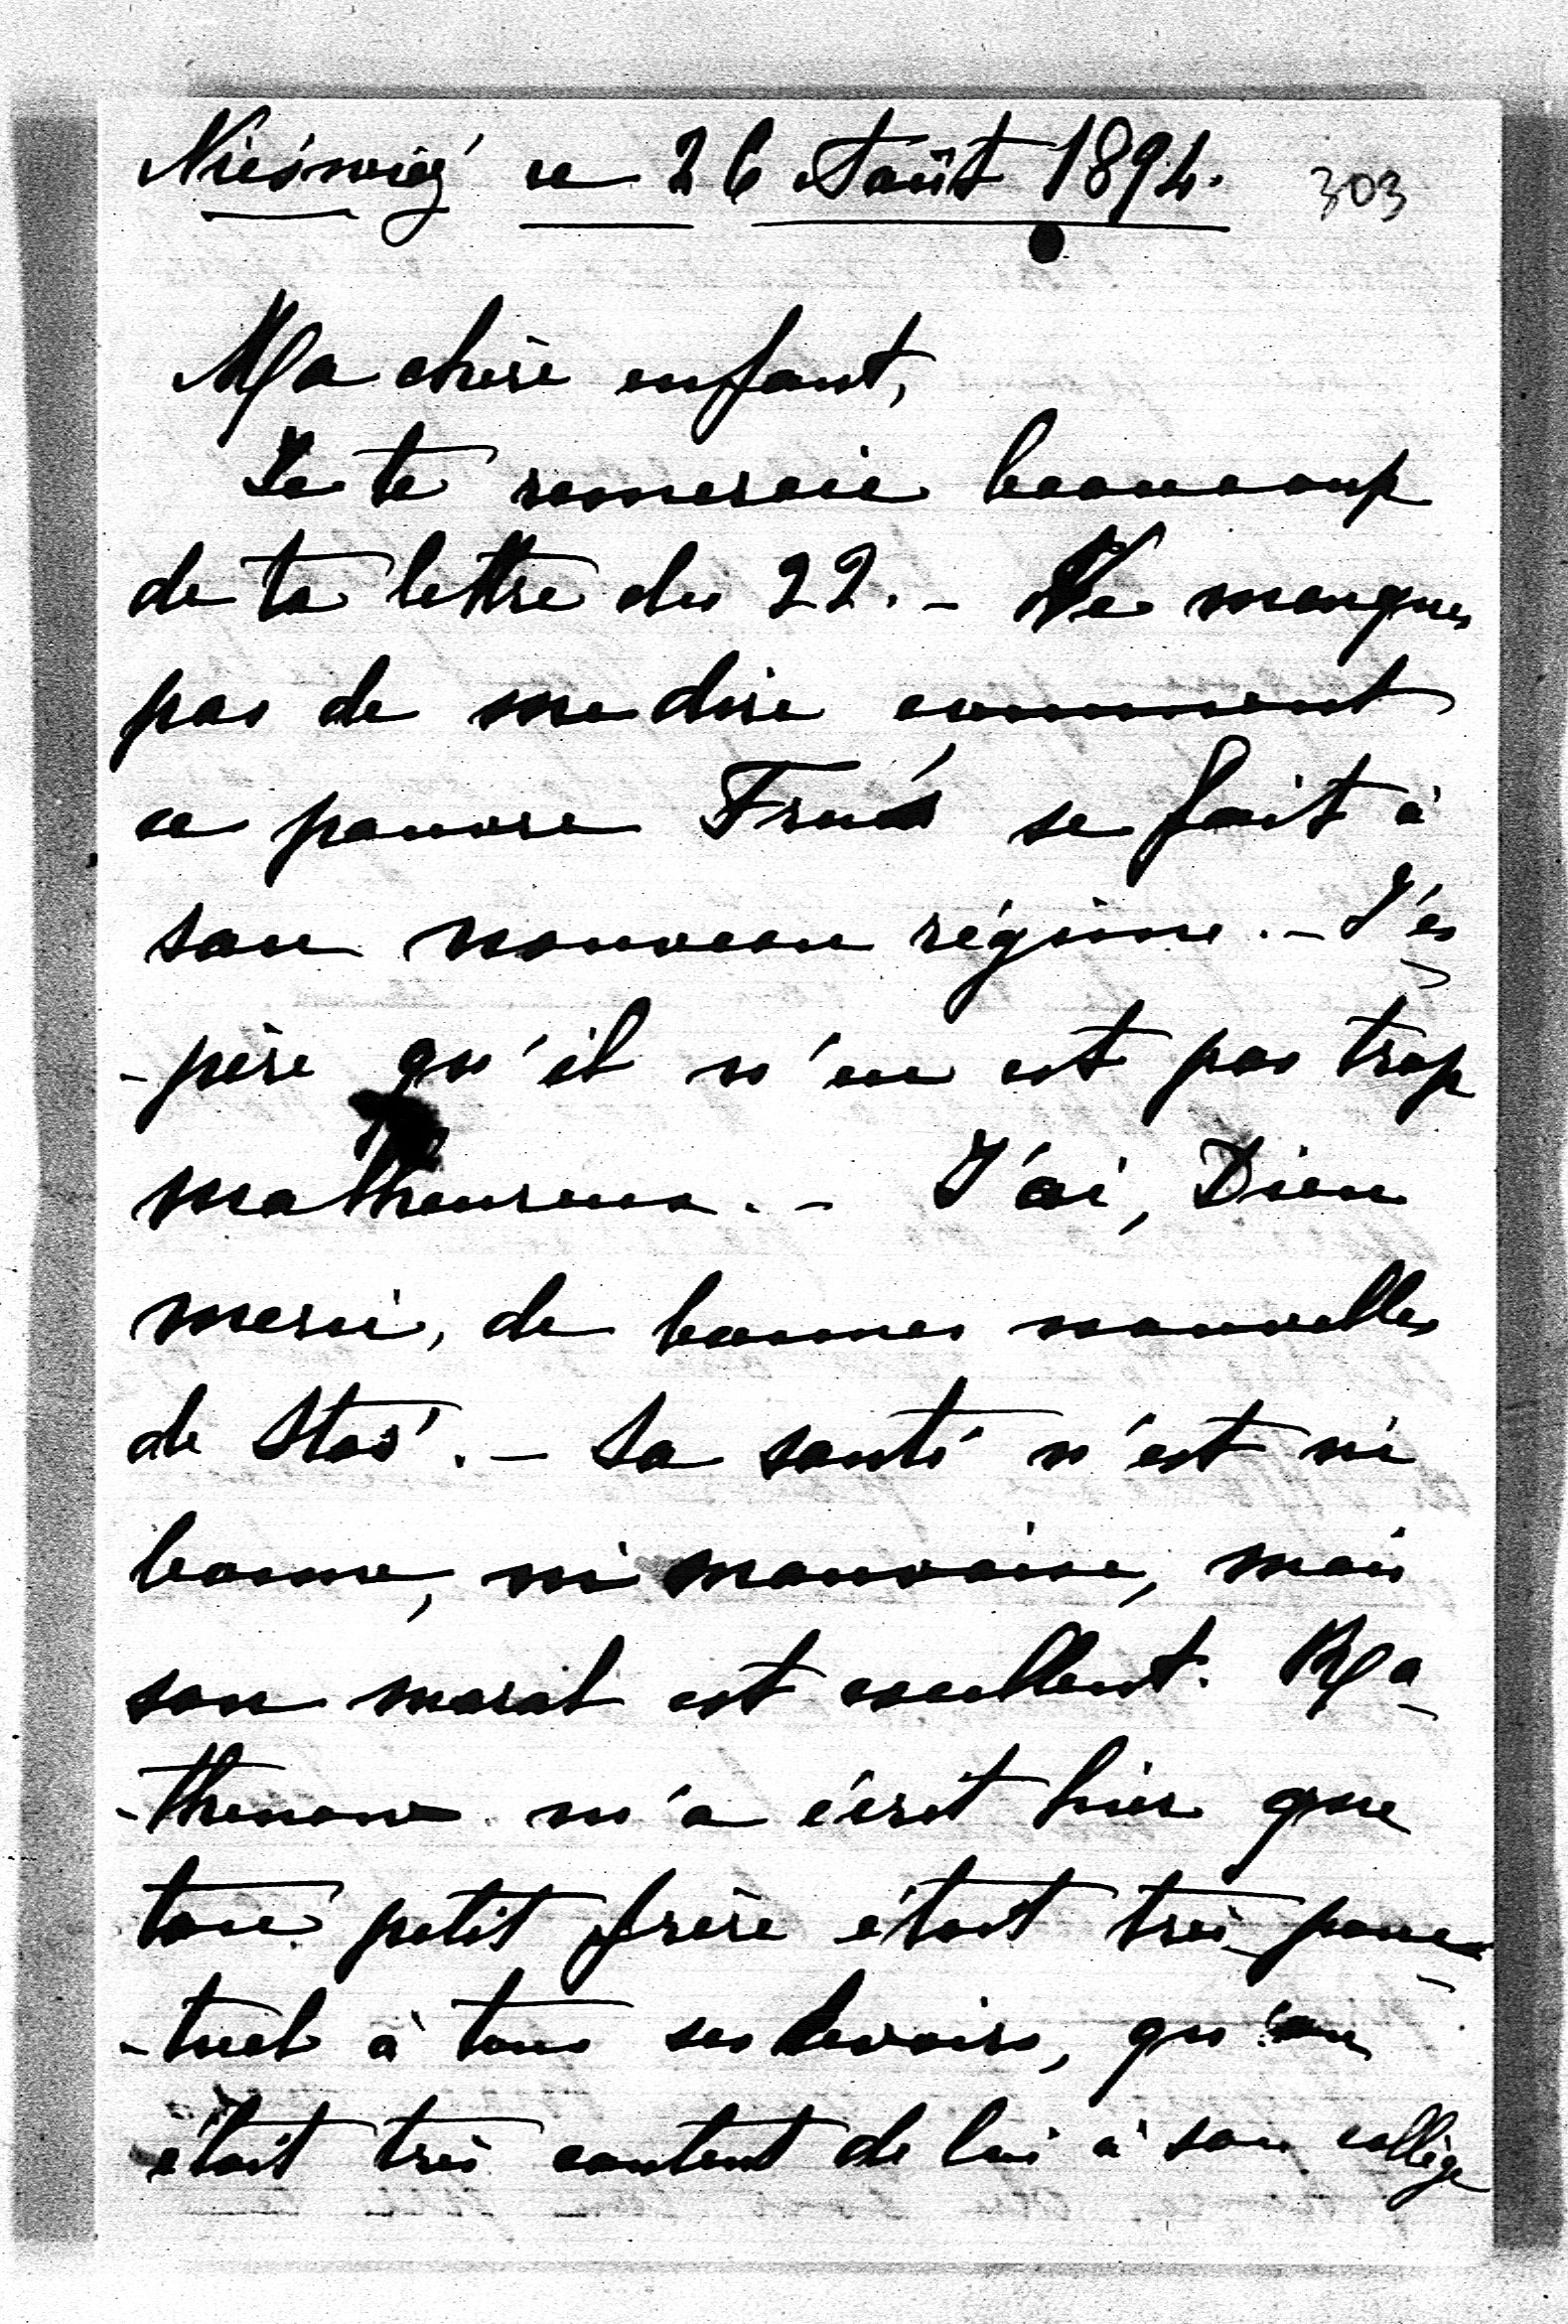 Nieśwież ce 26 Août 1894. 303
Ma chère enfant,
Je te remercie beaucoup
de ta lettre du 22. - Ne manques
pas de me dire comment
ce pauvre Fruś se fait à
son nouveau régime. - J'es
-père qu'il n'en est pas trop
malheureux. - J'ai, Dieu
merci, de bonnes nouvelles
de Staś. - Sa santé n'est ni
bonne, ni mauvaise, mais
son moral est excellent. Ma-
-thenow m'a écrit hier que
ton petit frère était très ponc-
-tuel à tous ses devoirs, qu'on
était très content de lui à son collège